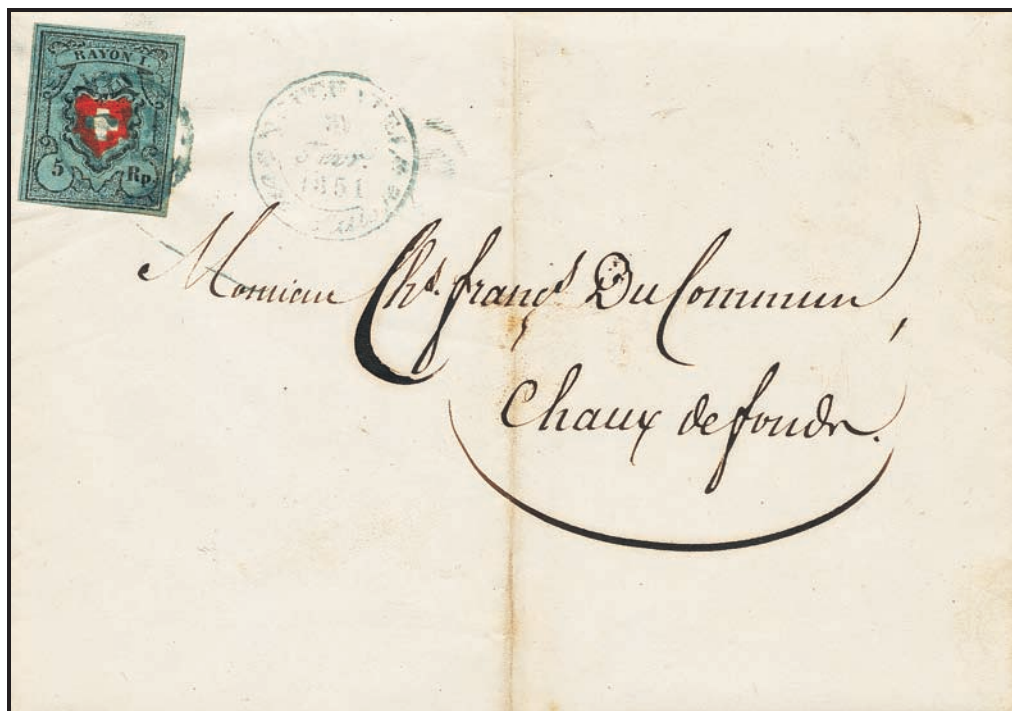 RAYON I.
5 Rp.
Fevr.
1851
Monsieur Chs. franç̧s DuCommun,
Chaux de fonds.